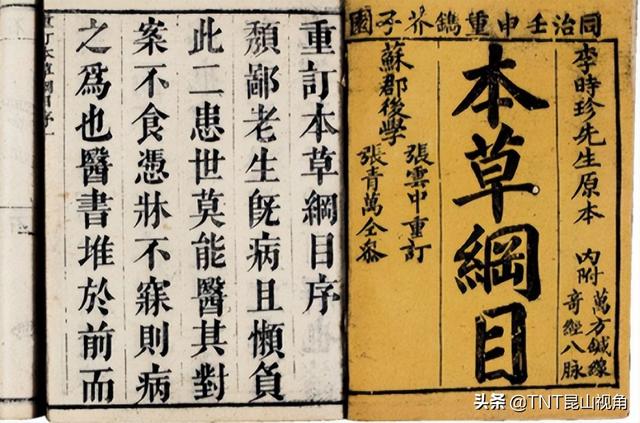 同治壬申重鐫芥子園
李時珍先生原本
內附
萬方鍼線
奇經八脉
本草綱目
蘇郡後學
張雲中重訂
張青萬仝參
重訂本草綱目序
頹鄙老生旣病且懶負
此二患世莫能醫其對
案不食憑牀不寐則病
之爲也醫書堆於前而
重訂本草綱目序
头条 @TNT昆山视角